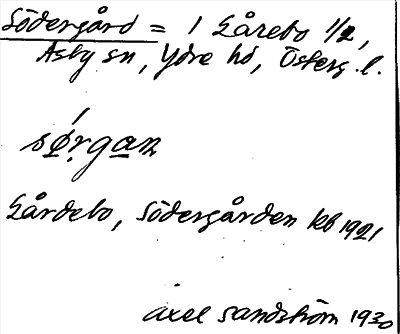 Södergård = 1 Gårebo 1/2,
Asby sn, Ydre hd, Österg. l.
sǿrgan
Gårdebo, Södergården kb 1921
Axel Sandström 1930